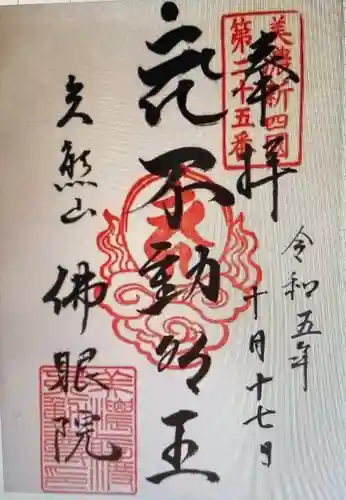 美濃新四國
第二十五番
奉拝
令和五年
十月十七日
不動明王
熊山
佛眼院